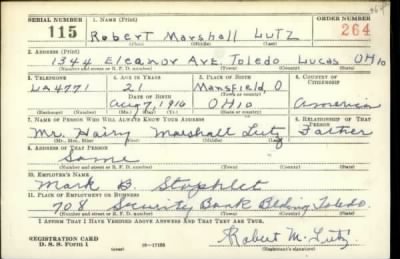 SERIAL NUMBER 1. NAME (Print) ORDER NUMBER
115 Robert Marshall LUTZ 264
(First) (Middle) (Last)
2. ADDRESS (Print)
1344 Eleanor Ave. Toledo Lucas OHIO
(Number and street or R. F. D. number) (Town) (County) (State)
3. TELEPHONE 4. AGE IN YEARS 5. PLACE OF BIRTH 6. COUNTRY OF CITIZENSHIP
LA4771 21 Mansfield, O
DATE OF BIRTH (Town or county)
Aug 7, 1916 OHIO America
(Exchange) (Number) (Mo.) (Day) (Yr.) (State or country)
7. NAME OF PERSON WHO WILL ALWAYS KNOW YOUR ADDRESS 8. RELATIONSHIP OF THAT PERSON
Mr. Harry Marshall Lutz Father
(Mr., Mrs., Miss) (First) (Middle) (Last)
9. ADDRESS OF THAT PERSON
Same
(Number and street or R. F. D. number) (Town) (County) (State)
10. EMPLOYER'S NAME
Mark B. Stophlet
11. PLACE OF EMPLOYMENT OR BUSINESS
708 Security Bank Blding Toledo.
(Number and street or R. F. D. number) (Town) (County) (State)
I AFFIRM THAT I HAVE VERIFIED ABOVE ANSWERS AND THAT THEY ARE TRUE.
REGISTRATION CARD
D. S. S. Form 1 (over) 16-17105 Robert M. Lutz
(Registrant's signature)